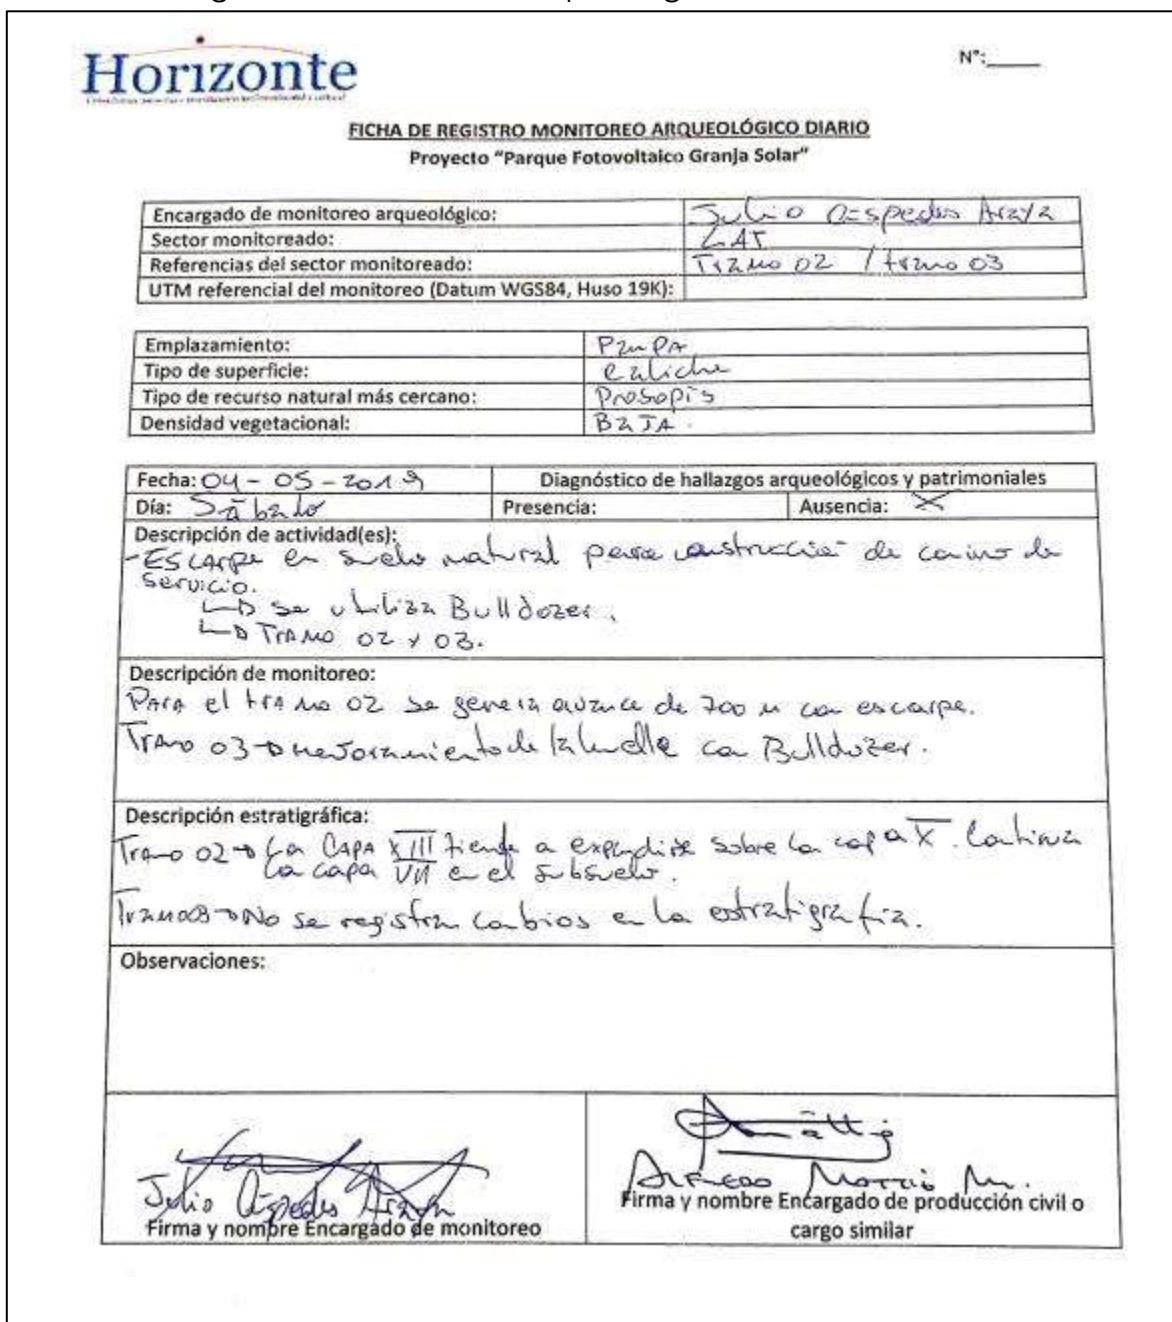 Horizonte
N°:_____
FICHA DE REGISTRO MONITOREO ARQUEOLÓGICO DIARIO
Proyecto "Parque Fotovoltaico Granja Solar"
Encargado de monitoreo arqueológico: Julio Céspedes Araya
Sector monitoreado: LAT
Referencias del sector monitoreado: Tramo 02 / tramo 03
UTM referencial del monitoreo (Datum WGS84, Huso 19K):
Emplazamiento: PamPA
Tipo de superficie: caliche
Tipo de recurso natural más cercano: Prosopis
Densidad vegetacional: BaJA.
Fecha: 04-05-2019 Diagnóstico de hallazgos arqueológicos y patrimoniales
Día: Sábado Presencia: Ausencia: X
Descripción de actividad(es):
- EScarpe en suelo natural para construcción de camino de
Servicio.
↳ Se utiliza Bulldozer.
↳ TRAMO 02 y 03.
Descripción de monitoreo:
PArA el trAmo 02 se genera avance de 700 m con escarpe.
TrAmo 03 → meJoramiento de la huella con Bulldozer.
Descripción estratigráfica:
Tramo 02 → La CAPA XIII tiende a expandirse sobre la capa X. Continua
la capa VII en el Subsuelo.
Tramo 03 → No se registran cambios en la estratigrafía.
Observaciones:
Julio Céspedes Araya
Firma y nombre Encargado de monitoreo
Alfredo M.
Firma y nombre Encargado de producción civil o
cargo similar